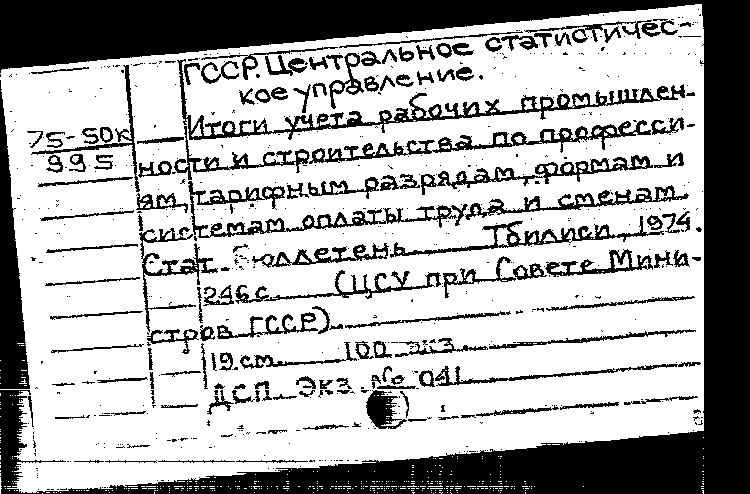 ГССР. Центральное статистичес-
кое управление.
75-50к
995
Итоги учета рабочих промышлен-
ности и строительства по професси-
ям, тарифным разрядам, формам и
системам оплаты труда и сменам.
Стат. бюллетень Тбилиси, 1974.
246 с. (ЦСУ при Совете Мини-
стров ГССР)
19 см. 100 экз.
ДСП. Экз. № 041